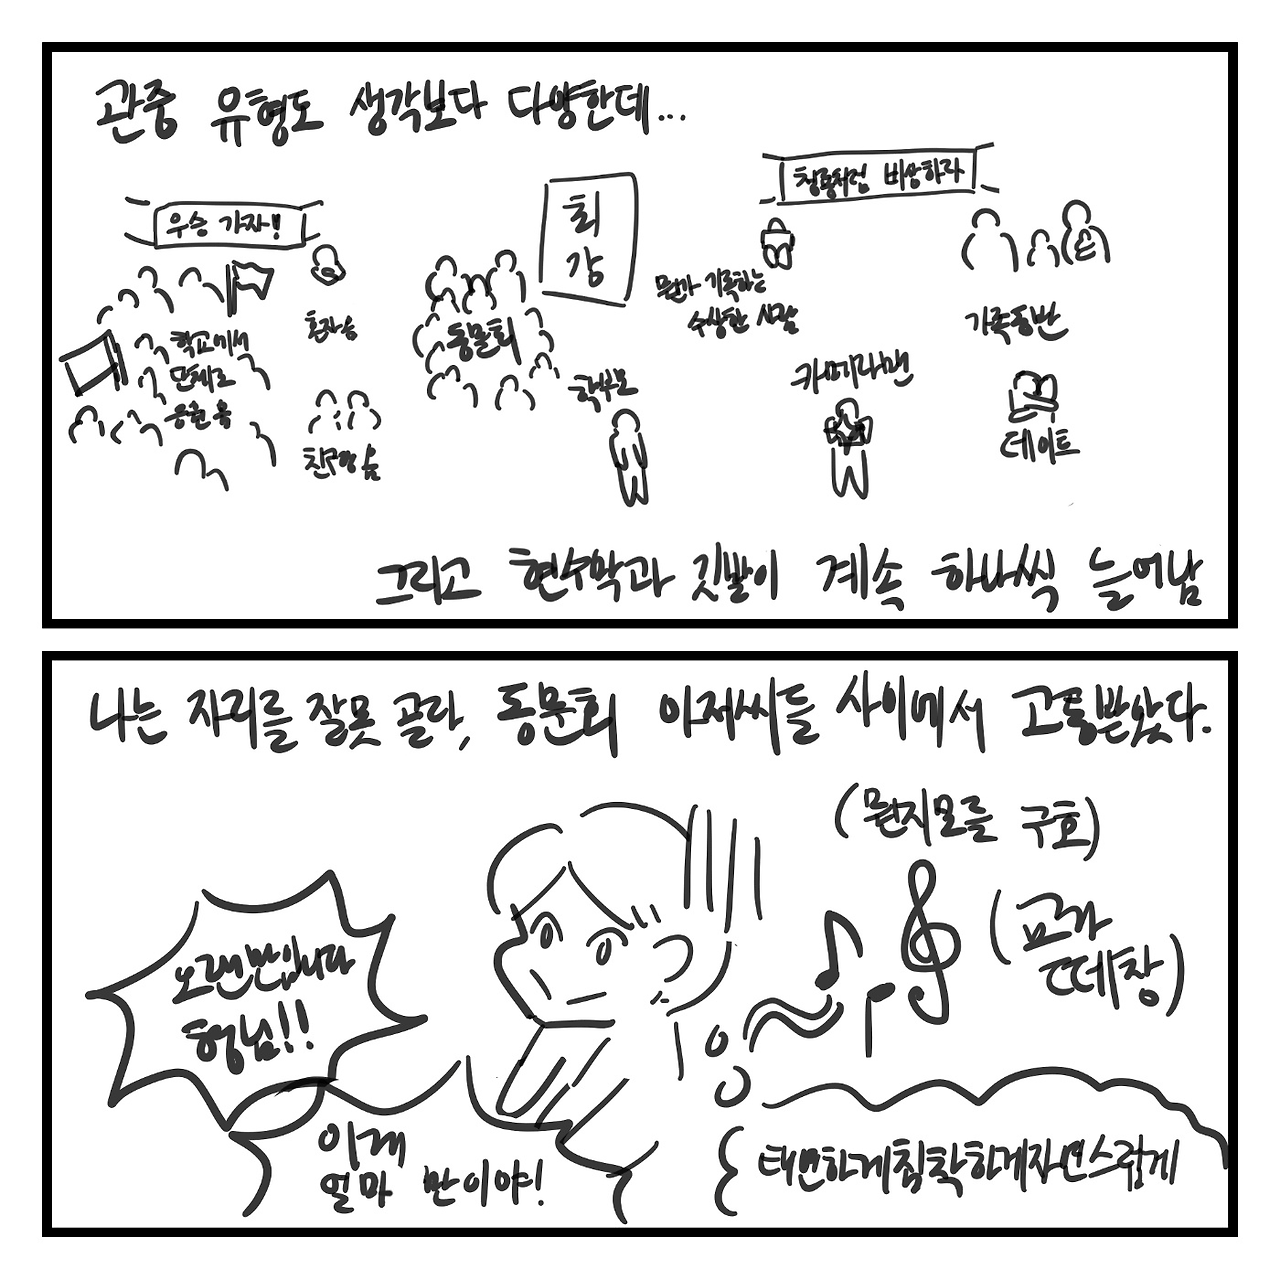 관중 유형도 생각보다 다양한데...
우승 가자!
혼자옴
학교에서
단체로
응원옴
친구랑 옴
최
강
동문회
학부모
청룡처럼 비상하라
뭔가 기록하는
수상한 사람
카메라맨
가족동반
데이트
그리고 현수막과 깃발이 계속 하나씩 늘어남
나는 자리를 잘못 골라, 동문회 아저씨들 사이에서 고통받았다.
(뭔지모를 구호)
(교가
떼창)
오랜만입니다
형님!!
이게
얼마 만이야!
태연하게침착하게자연스럽게